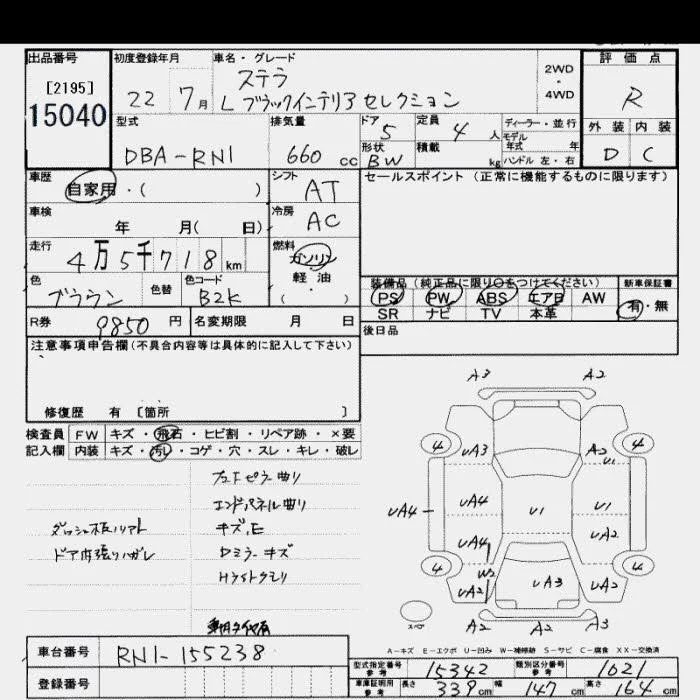 出品番号
[2195]
15040
初度登録年月
22 7月
車名・グレード
ステラ
L ブラックインテリアセレクション
2WD
・
4WD
評価点
R
外装 内装
D C
型式
DBA-RN1
排気量
660 cc
ドア
5
定員
4 人
形状
BW
積載
kg
ディーラー・並行
モデル
年式 年
ハンドル 左・右
車歴
自家用・( )
シフト
AT
セールスポイント (正常に機能するものに限ります)
車検
年 月( 日)
冷房
AC
走行
4万5千718km
燃料
ガソリン
軽・油
( )
色
ブラウン
色替
色コード
B2K
装備品 (純正品に限り○をつけてください)
新車保証書
PS PW ABS エアB AW
有・無
SR ナビ TV 本革
R券
9850 円
名変期限 月 日
後日品
注意事項申告欄(不具合内容等は具体的に記入して下さい)
修復歴 有 [箇所 ]
検査員
記入欄
FW キズ・飛石・ヒビ割・リペア跡・×要
内装 キズ・汚レ・コゲ・穴・スレ・キレ・破レ
エンドパネル曲り
キズ、E
Dミラーキズ
ドア内張りハガレ
A3 A2
4 4
UA3 A2
U1
UA4 UA4 U1 U1
UA4 UA2
W2
4 4
UA2 UA3 UA2
A2 A2 A3
スペア
A-キズ E-エクボ U-凹み W-補修跡 S-サビ C-腐食 XX-交換済
車台番号
RN1-155238
登録番号
型式指定番号
参考
15342
類別区分番号
参考
1021
車庫証明用
参考
長さ 339 cm 幅 147 cm 高さ 164 cm